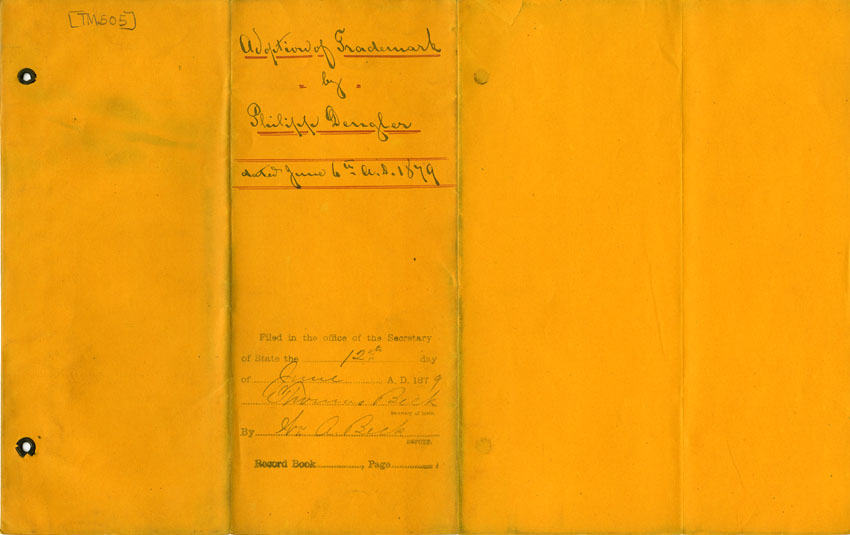 [TM505]
Adoption of Trademark
" by "
Philipp Dengler
dated June 6th A.D. 1879
Filed in the office of the Secretary
of State the 12th day
of June A. D. 1879
Thomas Beck
Secretary of State.
By A. Beck
DEPUTY.
Record Book , Page